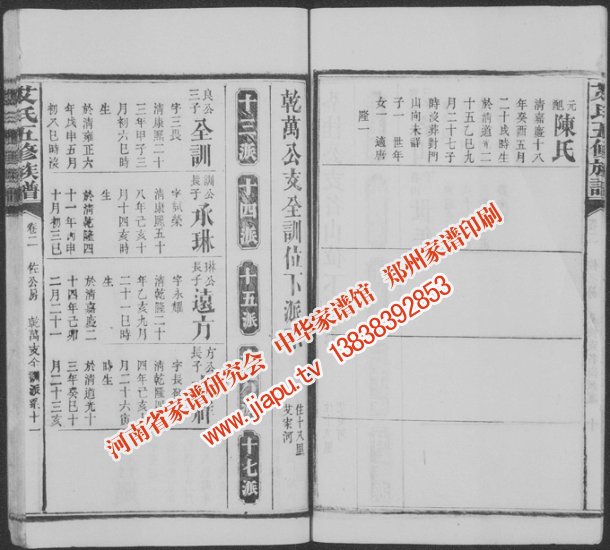 艾氏五修族譜
元
配
陳氏
清嘉慶十八
年癸酉五月
二十戌時生
於清道
二
十五乙巳九
月二十七子
時沒葬對門
山向未詳
子一 世年
女一 適唐
隆一
乾萬公支全訓位下派
住十八里
艾家河
十三派
十四派
十五派
十七派
良公
三子
全訓
字三長
清康熙二十
三年甲子三
月初六巳時
生
於清雍正六
年戊申五月
初八巳時沒
訓公
長子
承琳
清康熙五十
八年己亥十
月十四亥時
生
於清乾隆四
十一年丙申
十月初三巳
琳公
長子
遠方
字永耀
清乾隆二十
年乙亥九月
二十一巳時
生
於清嘉慶二
十四年己卯
二月二十一
方公
長子
清乾隆
四年己亥
月二十六寅
時生
於清道光十
三年癸巳十
月二十三亥
艾氏五修族譜
卷二
佐公房
乾萬支全訓派系十一
河南省家谱研究会 中华家谱馆 郑州家谱印刷
www.jiapu.tv 13838392853